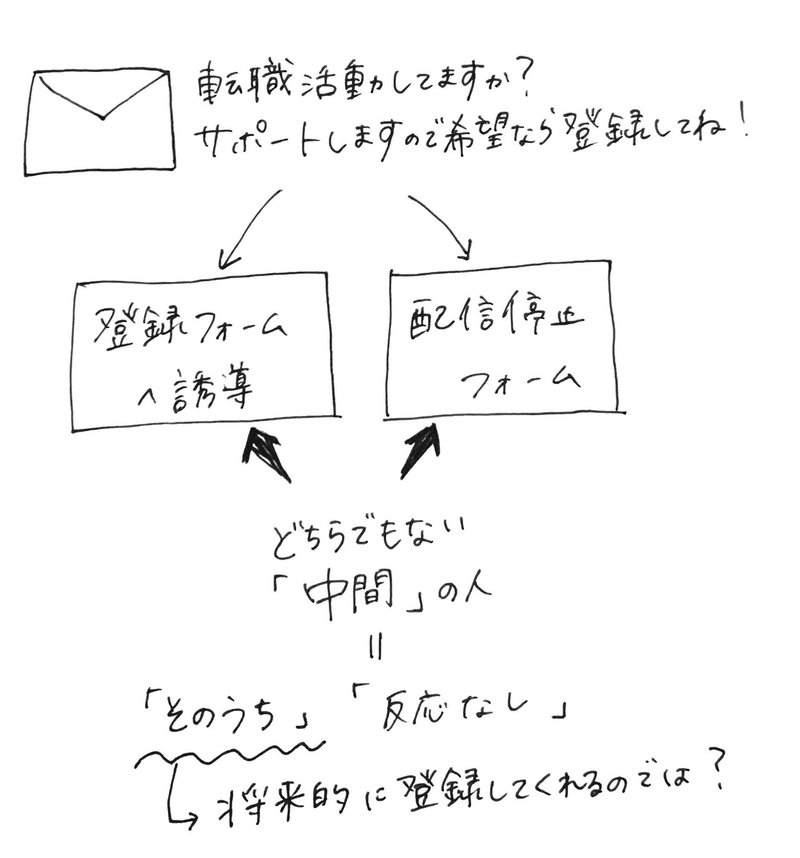 転職活動してますか?
サポートしますので希望なら登録してね!
登録フォーム
へ誘導
配信停止
フォーム
どちらでもない
「中間」の人
=
「そのうち」「反応なし」
将来的に登録してくれるのでは?